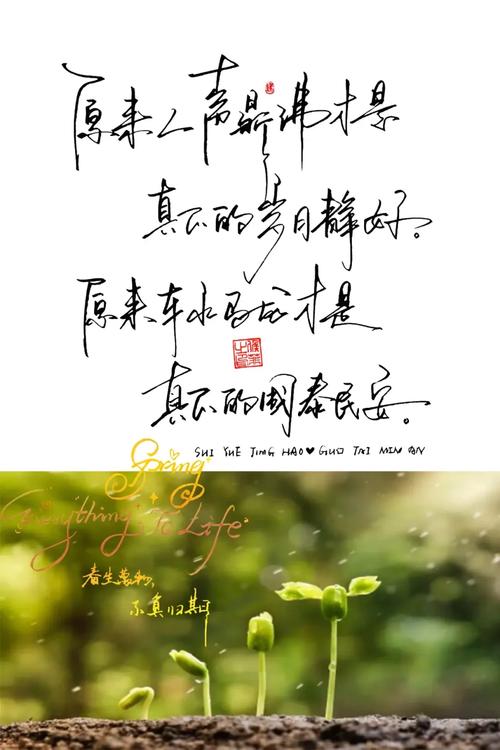 原来人声鼎沸才是
真正的岁月静好。
原来车水马龙才是
真正的国泰民安。
SUI YUE JING HAO♥GUO TAI MIN AN
Spring
Everything To Life
春生万物,
不负归期